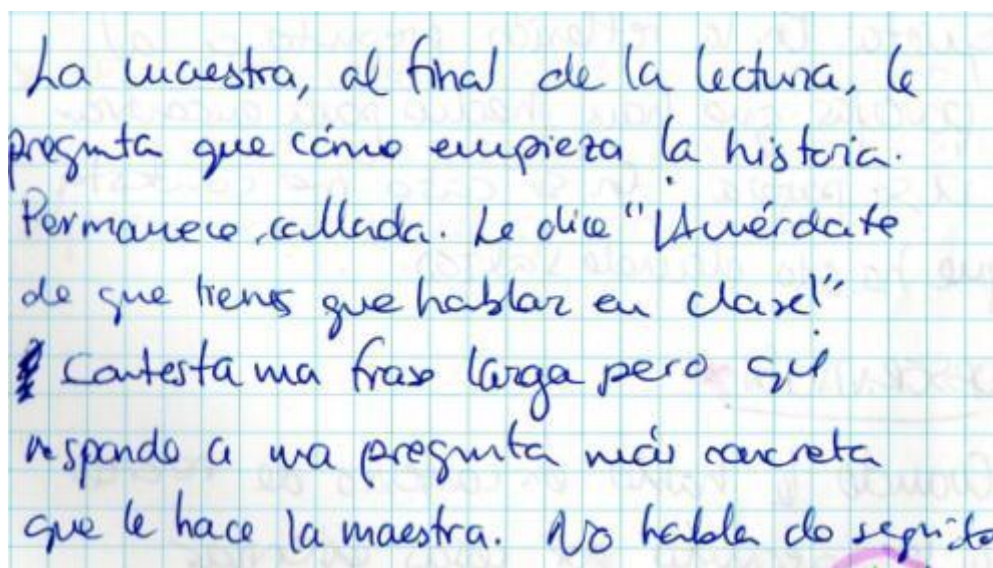 La maestra, al final de la lectura, le
pregunta que cómo empieza la historia.
Permanece callada. Le dice "¡Acuérdate
de que tienes que hablar en clase!"
Contesta una frase larga pero que
responde a una pregunta más concreta
que le hace la maestra. No habla de seguido